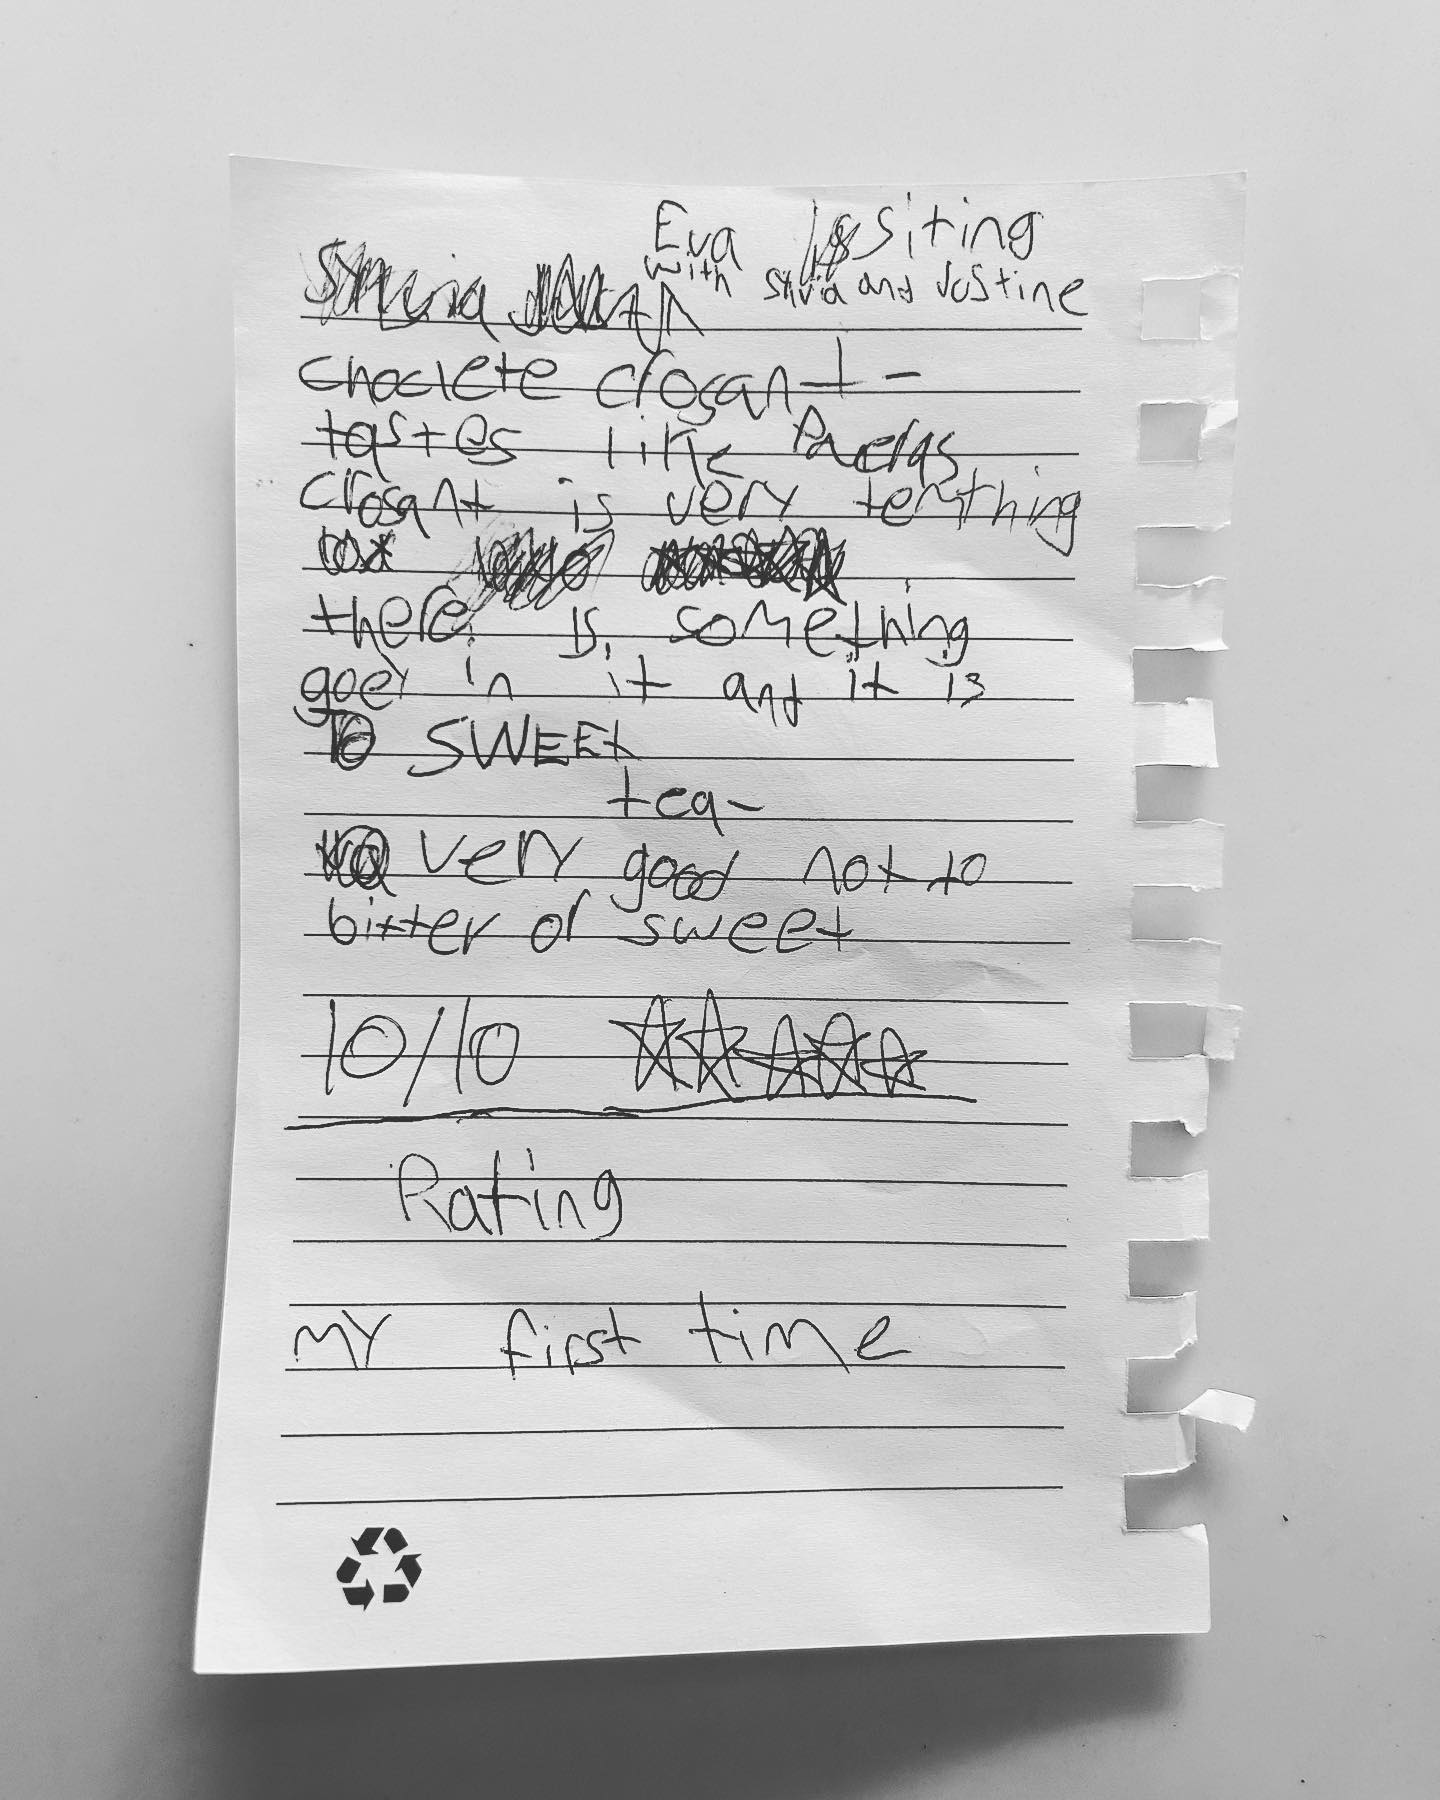 Eva is siting
with silvia and Justine
choclete crosant -
tastes like Paeras
crosant is very temthing
there is something
goey in it and it is
To SWEEt
tea-
very good not to
bitter or sweet
10/10
Rating
MY first time